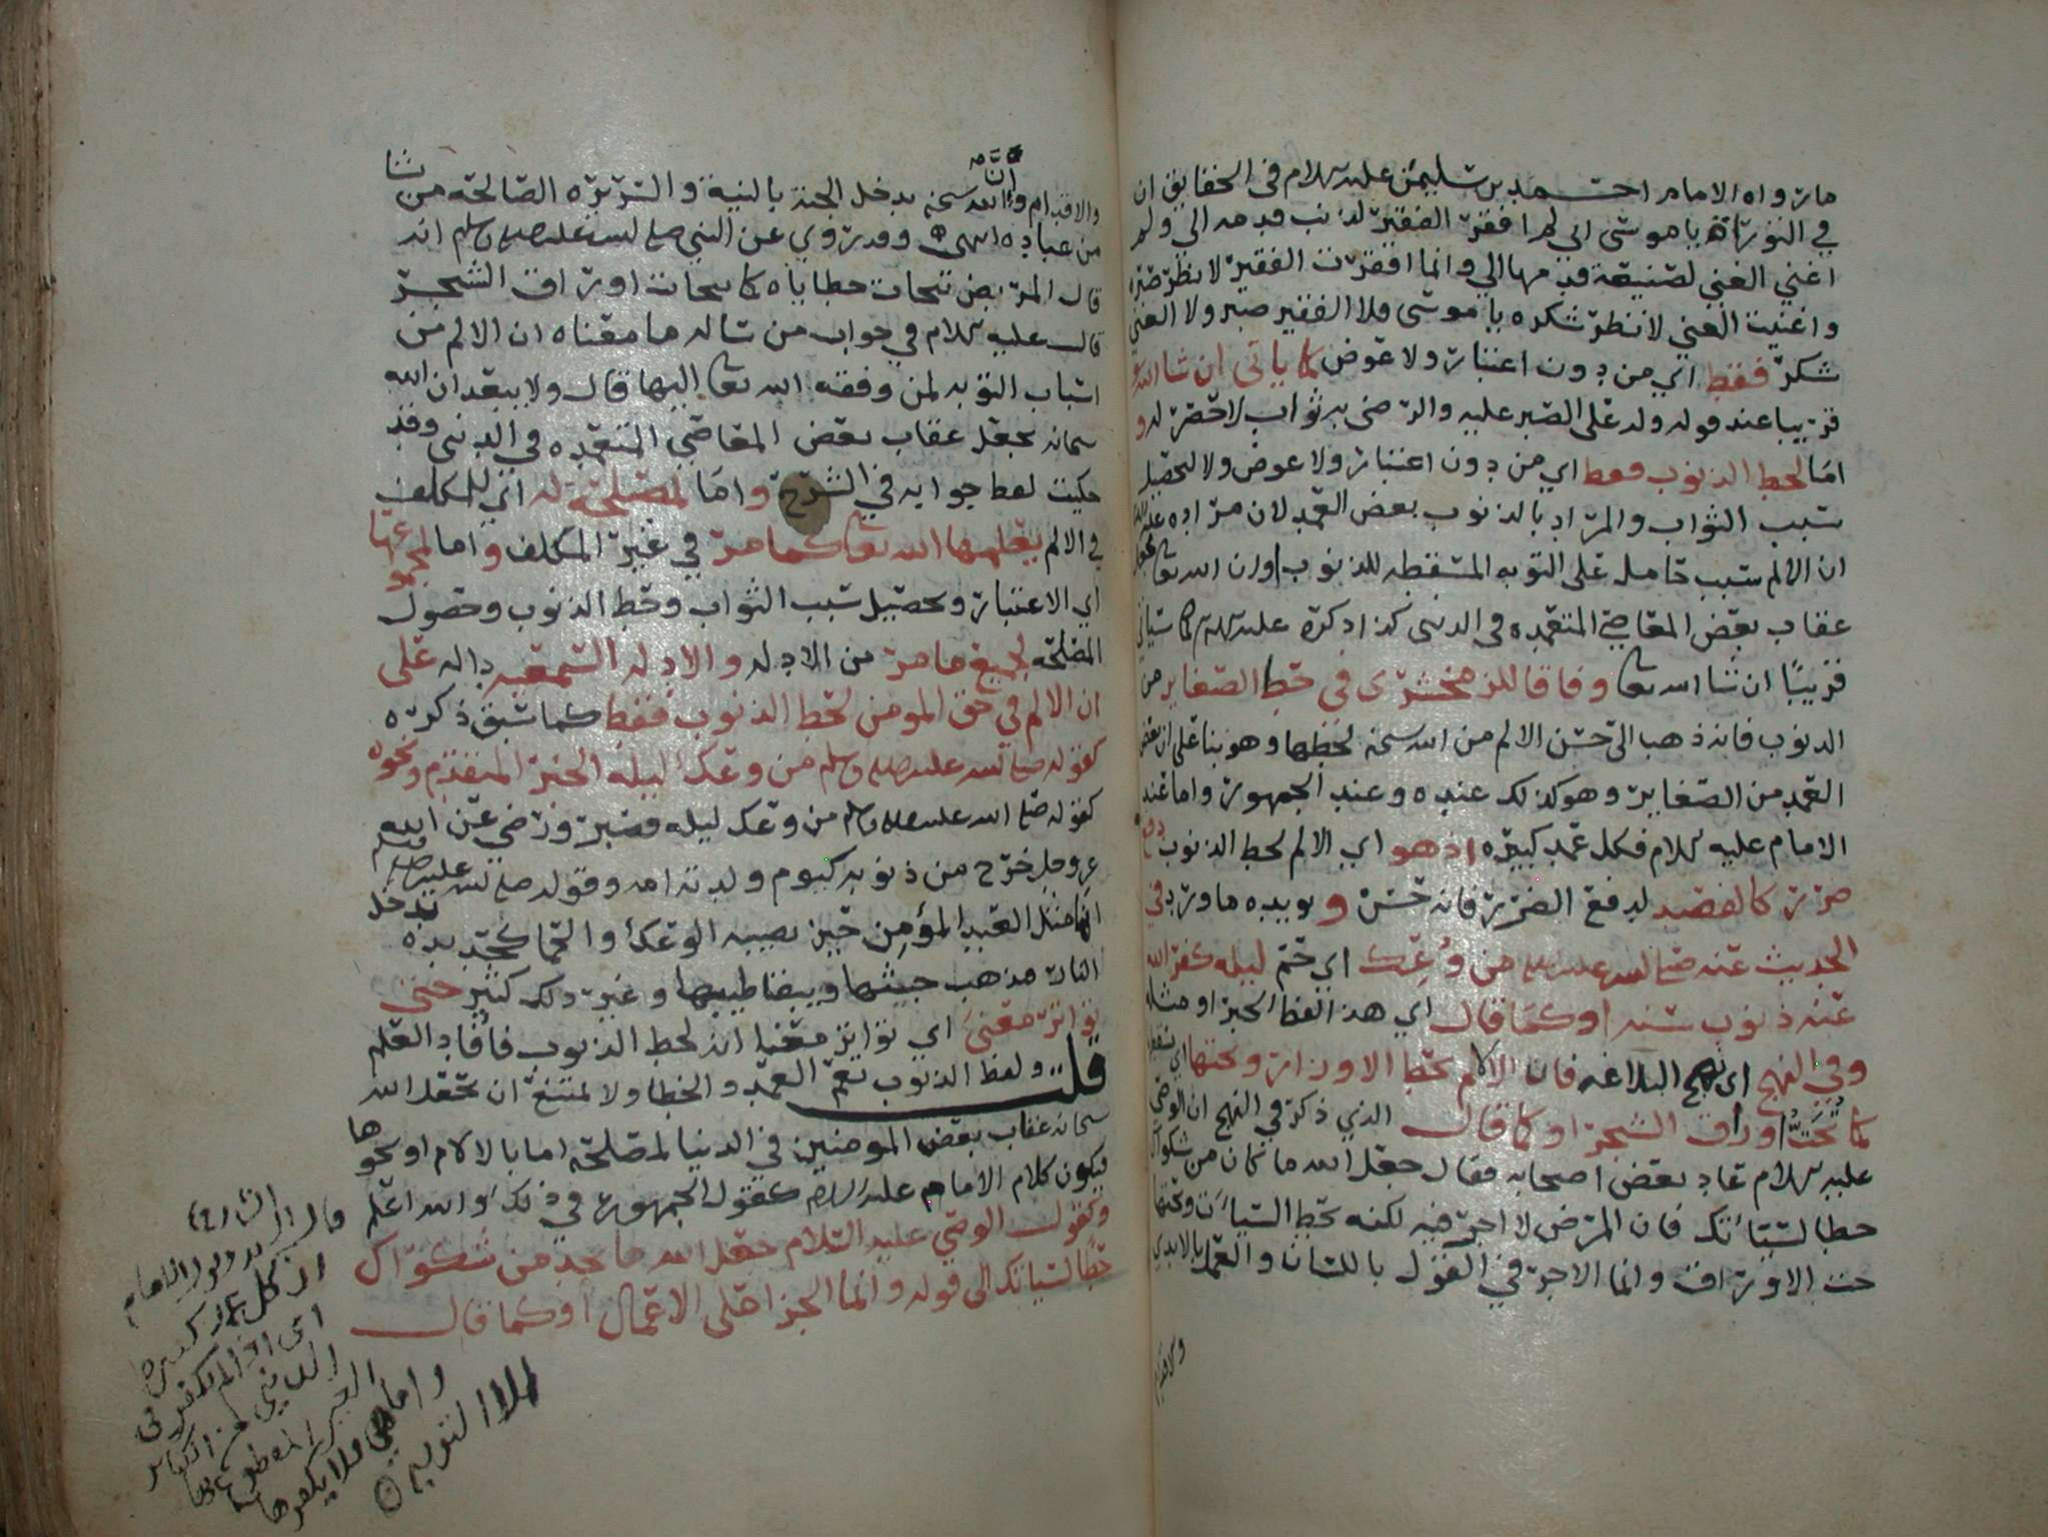 ما رواه الامام احمد بن سليمن عليه السلام في الحقايق ان
في التوراة يا موسى اني لم افقر الفقير لذنب قدمه الي ولم
اغني الغني لصنيعة قدمها الي وانما افقرت الفقير لانظر صبره
واغنيت الغني لانظر شكره يا موسى فلا الفقير صبر ولا الغني
شكر فقط اي من دون اعتبار ولا عوض كما ياتي ان شا الله
قريبا عند قوله وله على الصبر عليه والرضى به ثواب لا حصر له و
اما لحط الذنوب فقط اي من دون اعتبار ولا عوض ولا لتحصيل
سبب الثواب والمراد بالذنوب بعض العمد لان مراده عليه
ان الالم سبب حامل على التوبه المسقطه للذنوب او ان الله تعا يجعل
عقاب بعض المعاصي المتعمده في الدنى كذا ذكره عليه السلام كما سياتي
قريبًا ان شا الله تعا وفاقا للزمخشري في حط الصغاير من
الذنوب فانه ذهب الى حسن الالم من الله سبحنه لحطها وهو بنا على ان بعض
العمد من الصغاير وهو كذلك عنده وعند الجمهور واما عند
الامام عليه السلام فكل عمد كبيره اذ هو اي الالم لحط الذنوب دفع
ضرر كالفصد لدفع الضرر فانه حسن و يويده ما ورد في
الحديث عنه صلى الله عليه وسلم من وُعِك اي حمّ ليله كفر الله
عنه ذنوب سنه او كما قال اي هذا لفظ الخبر او مثله
وفي النهج اي نهج البلاغه فان الالام تحط الاوزار وتحتها اي تسقط
كما تُحَتُّ اوراق الشجر او كما قال الذي ذكره في النهج ان الوصي
عليه السلام عاد بعض اصحابه فقال جعل الله ما كان من شكواك
حطا لسيئاتك فان المرض لا اجر فيه لكنه يحط السيآت ويحتها
حت الاوراق وانما الاجر في القول باللسان والعمل بالايدي
والاقدام
والاقدام وانَّ الله سبحنه يدخل الجنة بالنية والسريره الصالحه من يشا
من عباده انتهى وقد روي عن النبي صلى الله عليه وسلم انه
قال المريض تتحات خطاياه كما يتحات اوراق الشجر
قال عليه السلام في جواب من ساله ما معناه ان الالم من
اسباب التوبه لمن وفقه الله تعا اليها قال ولا يبعد ان الله
سبحانه يجعل عقاب بعض المعاصي المتعمده في الدنى وقد
حكيت لفظ جوابه في الشرح واما لمصلحة له اي للمكلف
في الالم يعلمها الله تعا كما مر في غير المكلف واما لمجموعها
اي الاعتبار وتحصيل سبب الثواب وحط الذنوب وحصول
المصلحه لجميع ما مر من الادله والادله السمعيه داله على
ان الالم في حق المومن لحط الذنوب فقط كما سبق ذكره
كقوله صلى الله عليه وسلم من وعك ليله الخبر المتقدم ونحوه
كقوله صلى الله عليه وسلم من وعك ليله فصبر ورضي عن الله
عز وجل خرج من ذنوبه كيوم ولدته امه وقوله صلى الله عليه وسلم
انما مثل العبد المؤمن حين يصيبه الوعك او الحما كحديده تدخل
النار فيذهب خبيثها ويبقا طيبها وغير ذلك كثير حتى
تواتر معنىً اي تواتر معنا انه لحط الذنوب فأفاد العلم
قلت ولفظ الذنوب يعم العمد والخطا ولا يمتنع ان يجعل الله
سبحانه عقاب بعض المومنين في الدنيا لمصلحه اما بالالام او نحوها
فيكون كلام الامام عليه السلام كقول الجمهور في ذلك والله اعلم
وكقول الوصي عليه السلام جعل الله ما تجد من شكواك
حطا لسيئاتك الى قوله وانما الجزا على الاعمال او كما قال
قال الشارح
الامام
ان كل عمد كبيره
واما
فلا يكفرها
الا التوبه